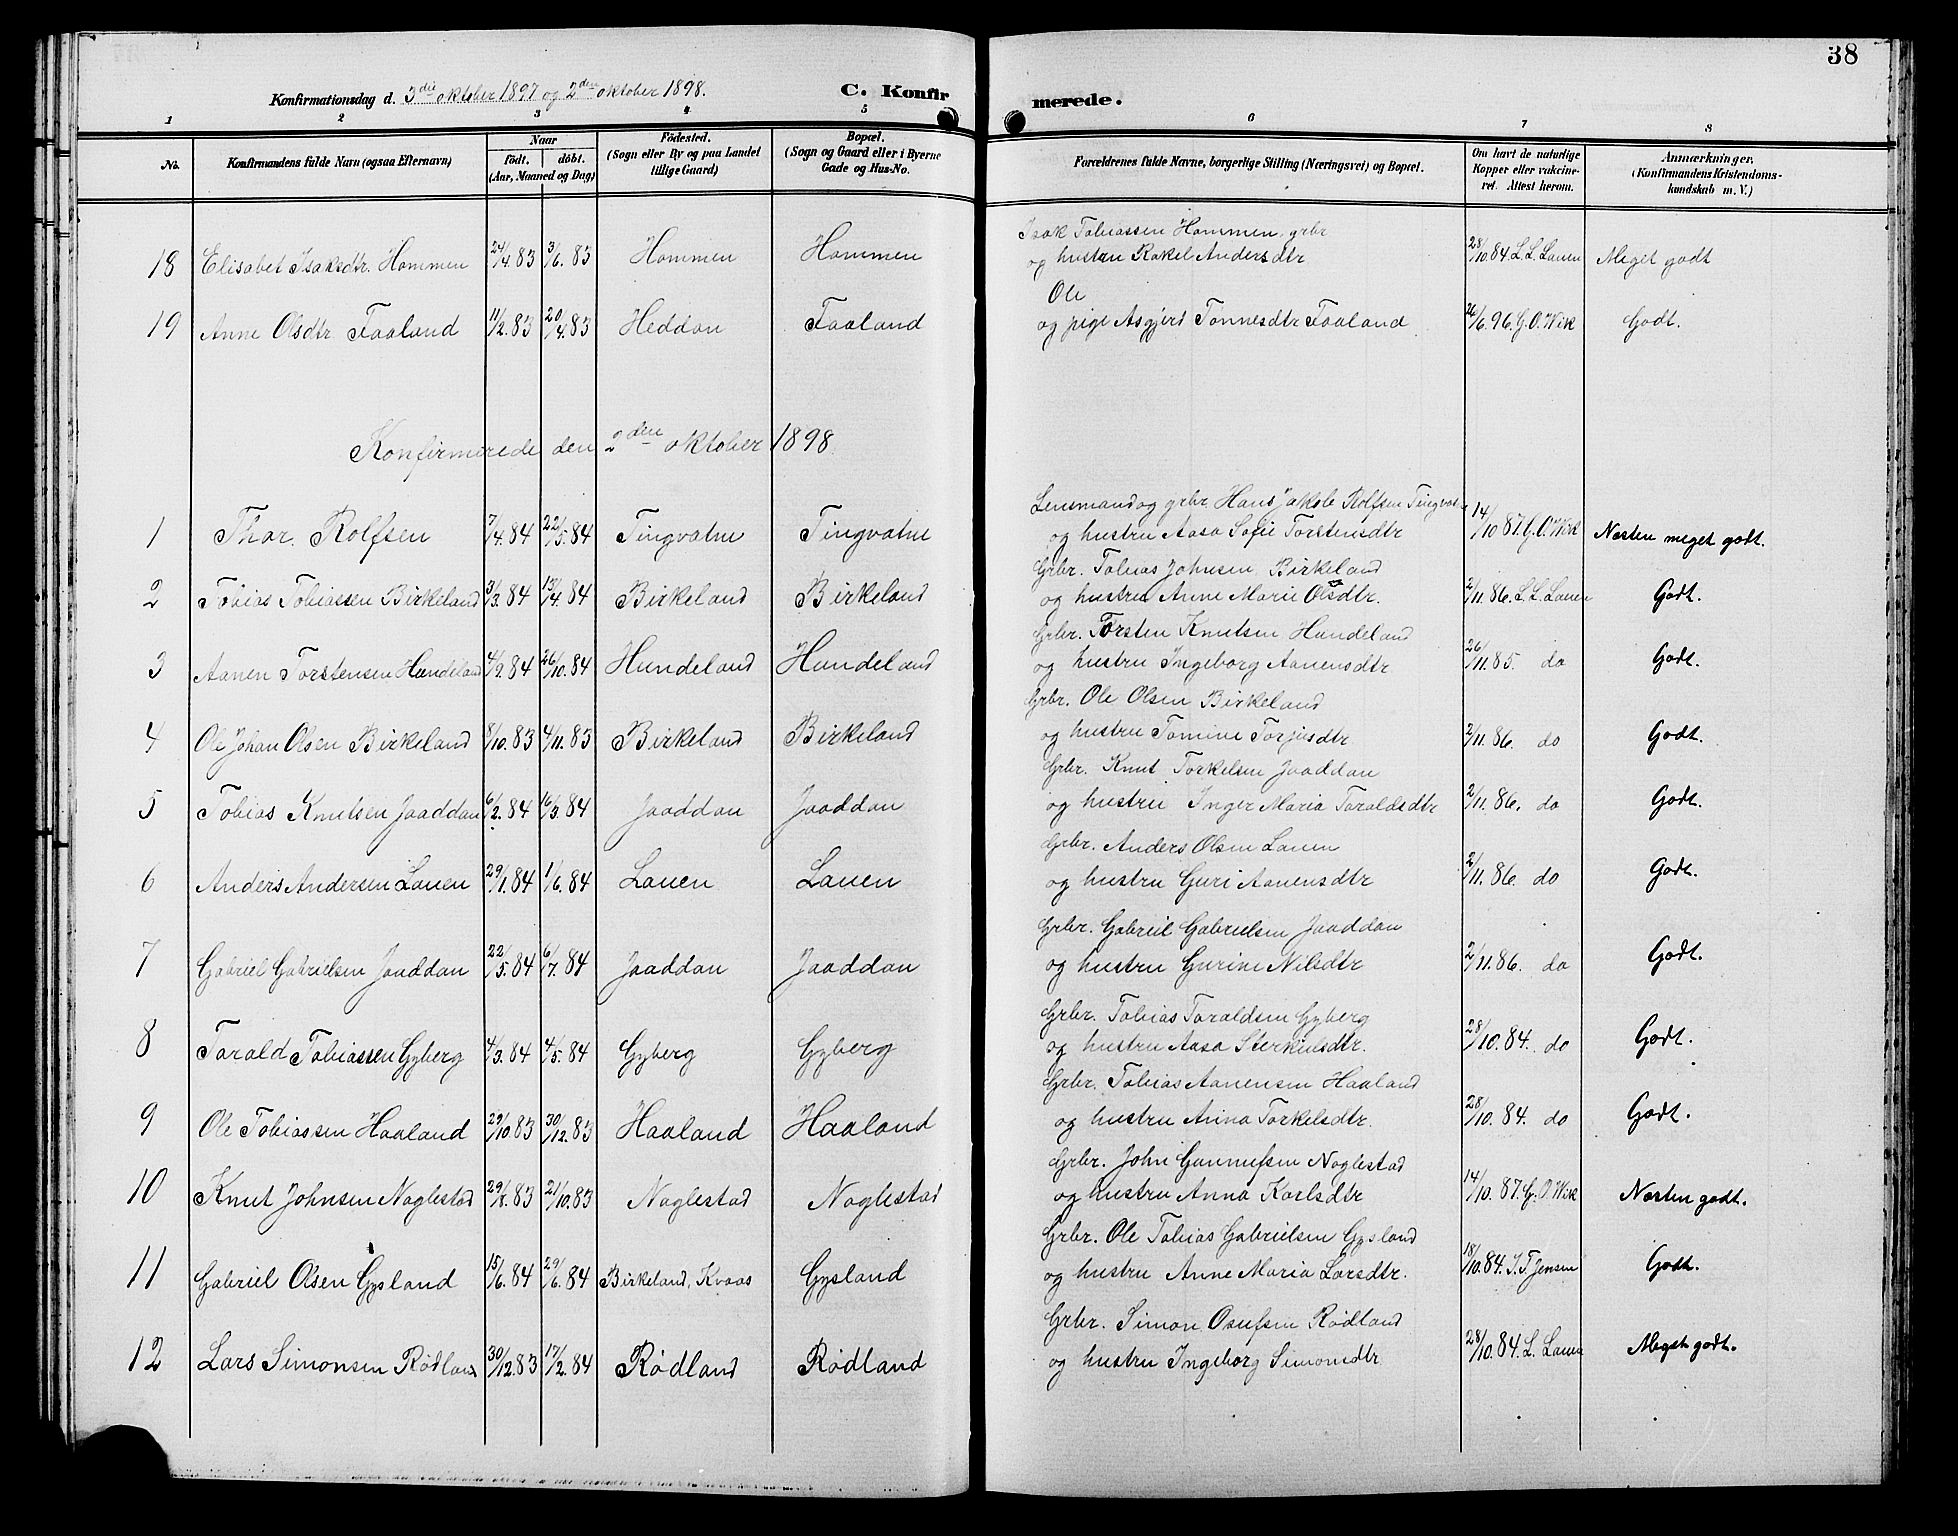 38
Konfirmationsdag d. 3die oktober 1897 og 2den oktober 1898. C. Konfirmerede.
1 2 3 4 5 6 7 8
No. Konfirmandens fulde Navn (ogsaa Efternavn) Naar født. døbt. (Aar, Maaned og Dag) Födested. (Sogn eller By og paa Landet tillige Gaard) Bopæl. (Sogn og Gaard eller i Byerne Gade og Hus-No. Forældrenes fulde Navne, borgerlige Stilling (Næringsvei) og Bopæl. Om havt de naturlige Kopper eller vakcineret. Attest herom. Anmærkninger. (Konfirmandens Kristendomskundskab m. V.)
Isak Tobiassen Hommen, grbr
18 Elisabet Isaksdtr. Hommen 24/4.83 3/6.83 Hommen Hommen og hustru Rakel Andersdtr 28/10.84 L. L. Lauen Meget godt
Ole
19 Anne Olsdtr Faaland 11/2.83 20/4.83 Heddan Faaland og pige Asgjerd Tønnesdtr Faaland 26/6.96. G. O. Wik Godt.
Konfirmerede den 2den oktober 1898
Lensmand og grbr. Hans Jakob Rolfsen Tingvatne
1 Thor. Rolfsen 7/4.84 22/5.84 Tingvatne Tingvatne og hustru Aasa Sofie Torstensdtr 14/10 87. G. O. Wik Næsten meget godt.
Grbr. Tobias Johnsen Birkeland
2 Tobias Tobiassen Birkeland 3/3.84 13/4.84 Birkeland Birkeland og hustru Anne Marie Olsdtr. 2/11.86. L. L. Lauen Godt.
Grbr. Torsten Knutsen Hundeland
3 Aanen Torstensen Hundeland 4/9.84 26/10.84 Hundeland Hundeland og hustru Ingeborg Aanensdtr 26/11.85. do Godt.
Grbr. Ole Olsen Birkeland
4 Ole Johan Olsen Birkeland 8/10.83 4/11.83 Birkeland Birkeland og hustru Tomine Torjusdtr 2/11.86. do Godt.
Grbr. Knut Torkelsen Jaaddan
5 Tobias Knutsen Jaaddan 6/2.84 16/3.84 Jaaddan Jaaddan og hustru Inger Maria Taraldsdtr 2/11.86. do Godt.
Grbr. Anders Olsen Lauen
6 Anders Andersen Lauen 29/1.84 1/6.84 Lauen Lauen og hustru Guri Aanensdtr 2/11.86. do Godt.
Grbr. Gabriel Gabrielsen Jaaddan
7 Gabriel Gabrielsen Jaaddan 22/5.84 6/7.84 Jaaddan Jaaddan og hustru Gurine Nilsdtr 2/11.86. do Godt.
Grbr. Tobias Taraldsen Gyberg
8 Tarald Tobiassen Gyberg 4/3.84 4/5.84 Gyberg Gyberg og hustru Aasa Sterkulsdtr. 28/10.84. do Godt.
Grbr. Tobias Aanensen Haaland
9 Ole Tobiassen Haaland 29/10.83 30/12.83 Haaland Haaland og hustru Anna Torkelsdtr. 28/10.84. do Godt.
Grbr. John Gunnufsen Naglestad
10 Knut Johnsen Naglestad 29/8.83 21/10.83 Naglestad Naglestad og hustru Anna Karlsdtr 14/10.87. G. O. Wik Næsten godt.
Grbr. Ole Tobias Gabrielsen Gysland
11 Gabriel Olsen Gysland 15/6.84 29/6.84 Birkeland, Kvaas Gysland og hustru Anne Maria Larsdtr. 18/10.84. J. T. Jensen Godt.
Grbr. Simon Osufsen Rødland
12 Lars Simonsen Rødland 30/12.83 17/2.84 Rødland Rødland og hustru Ingeborg Simonsdtr 28/10.84. L. Lauen Meget godt.